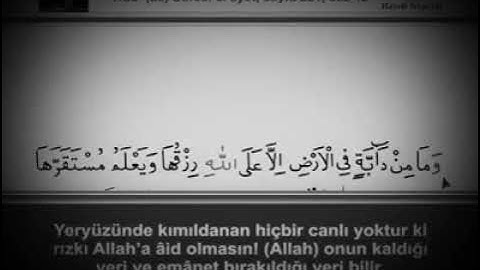 وَمَا مِنْ دَٓابَّةٍ فِي الْاَرْضِ اِلَّا عَلَى اللّٰهِ رِزْقُهَا وَيَعْلَمُ مُسْتَقَرَّهَا
Yeryüzünde kımıldanan hiçbir canlı yoktur ki
rızkı Allah'a âid olmasın! (Allah) onun kaldığı
yeri ve emânet bırakıldığı yeri bilir